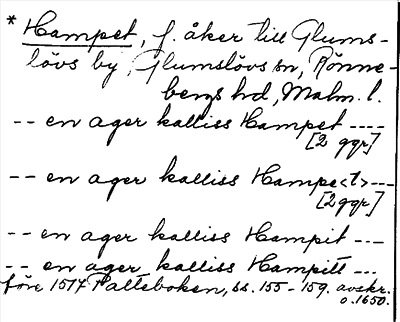 * Hampet, f. åker till Glums-
lövs by, Glumslövs sn, Rönne-
bergs hd, Malm. l.
-- en ager kalliss Hampet ----
[2 ggr]
-- en ager kalliss Hampe<t> ---
[2 ggr]
-- en ager kalliss Hampit ---
-- en ager kalliss Hampitt ---
före 1517 Palteboken, ss. 155-159. avskr.
o. 1650.